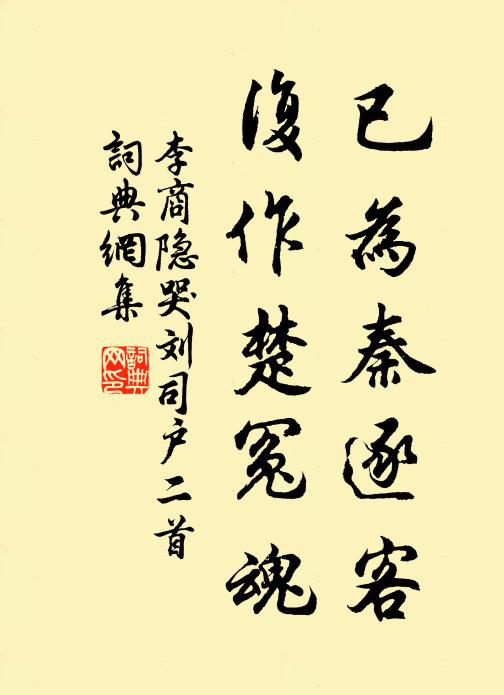 已為秦逐客
復作楚冤魂
李商隐哭刘司户二首
詞典網集
詞典網印